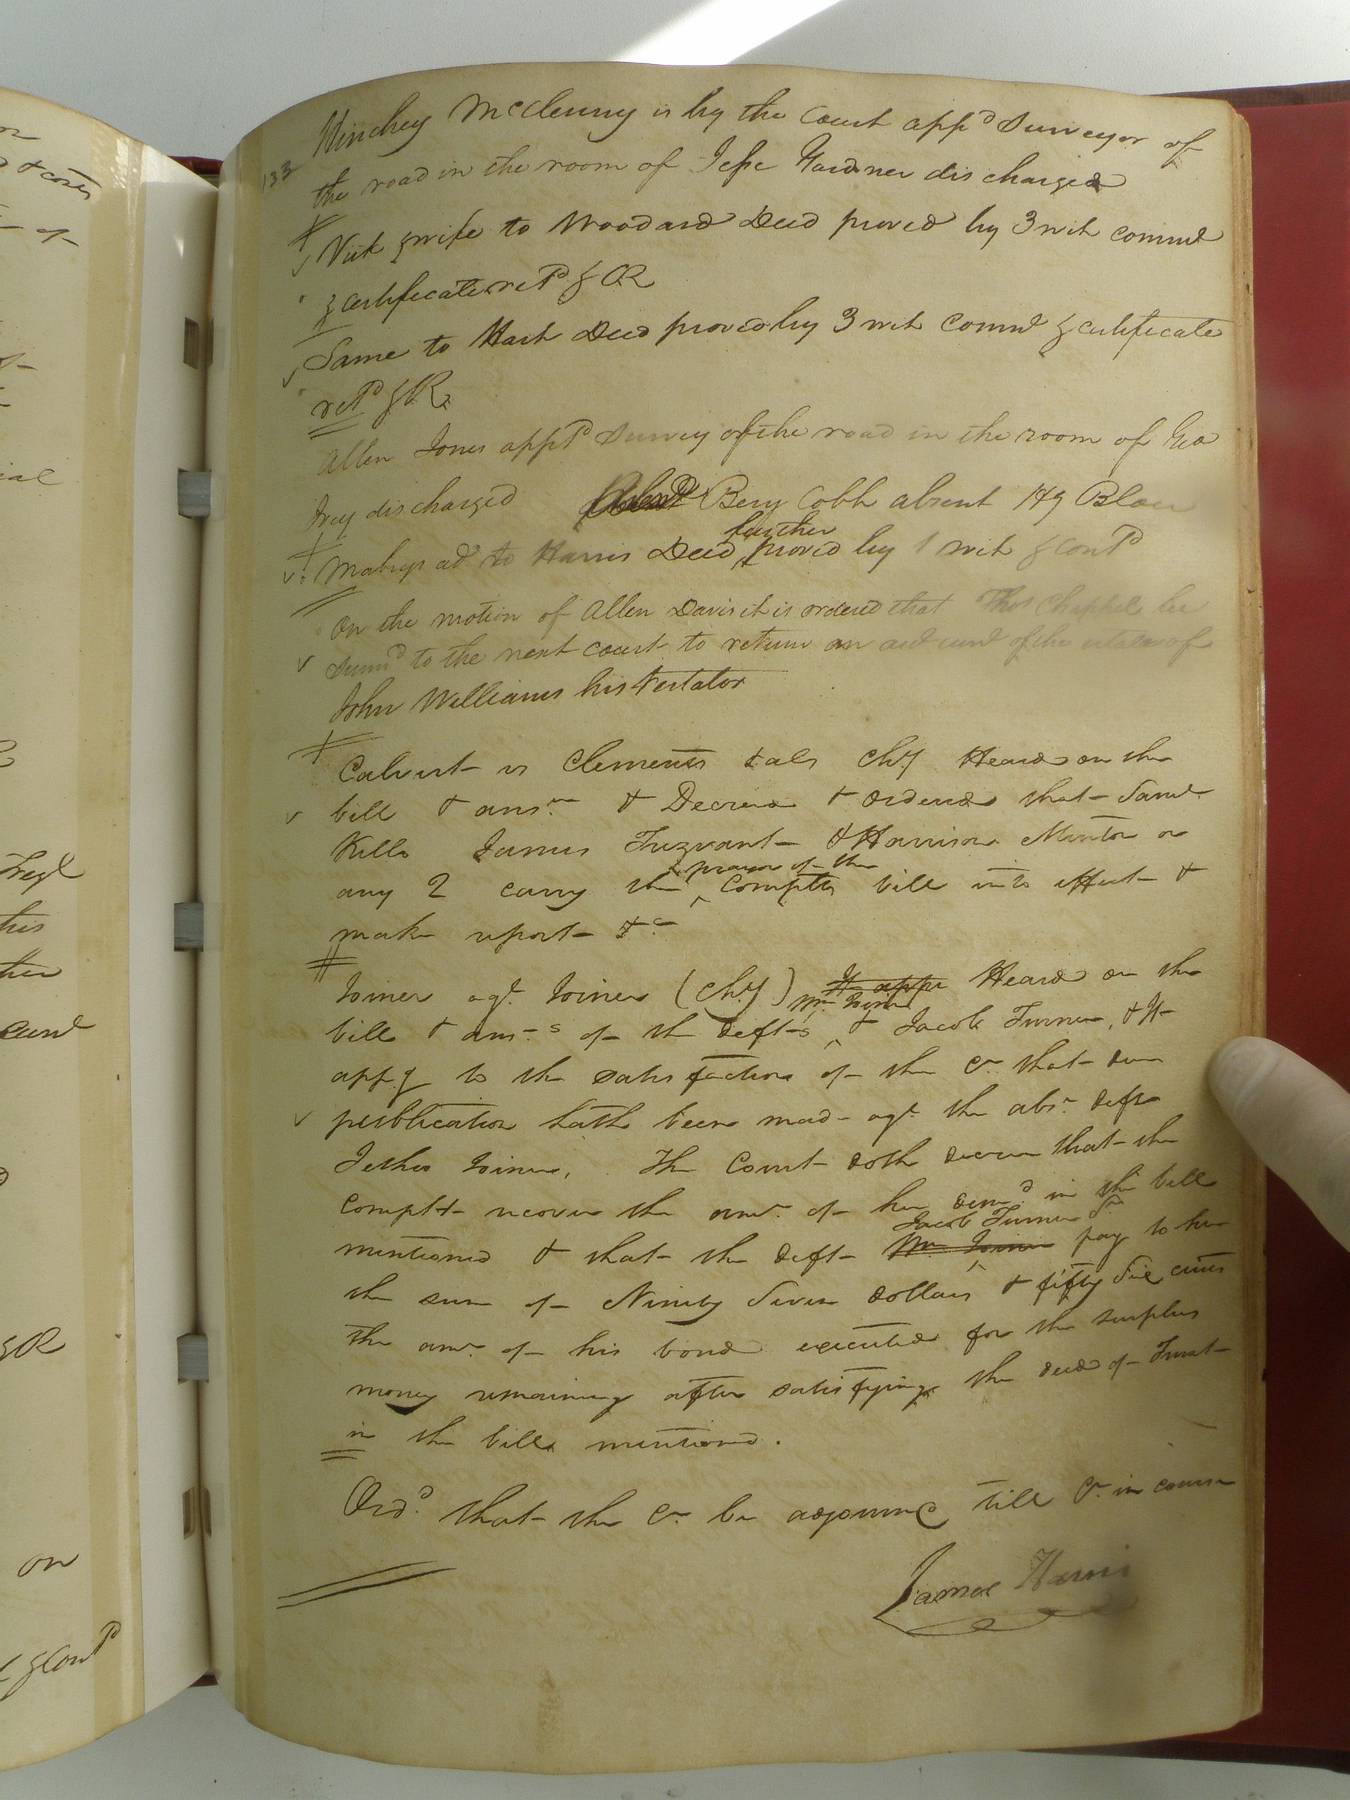 133
Hinchey McClenny is by the Court app.d Surveyor of
the road in the room of Jesse Gardner discharged
Vick & wife to Woodard Deed proved by 3 wit comm
& certificate ret.d & OR
Same to Hart Deed proved by 3 wit Comm & certificate
ret.d & R.
Allen Jones app.td Survey of the road in the room of Geo
Ivey discharged Absent Benj Cobb absent Hy Blow
ad to Harris Deed further proved by 1 wit & cont.d
On the motion of Allen Davis it is ordered that Thos be
Summ.d to the next court to return an of the estate of
John Williams his testator
Calvert vs Clements & als Ch.y Heard on the
bill & ans.rs & Decreed & ordered that Saml.
Kello James Trezvant & Harrison Minton or
any 2 carry the prayer of the Complts bill into effect &
make report &c
Joiner ag.t Joiner (Ch.y) It appr Heard on the
bill & ans.rs of the Defts Wm Joiner & Jacob Turner, & It
app.g to the satisfaction of the C.t that due
publication hath been made ag.t the abs.t Deft
Jethro Joiner, The Court doth decree that the
Complt recover the am.t of her dem.d in the bill
mentioned & that the Deft Wm Joiner Jacob Turner Sr pay to her
the sum of Ninety Seven dollars & fifty Six cents
the am.t of his bond executed for the surplus
money remaining after satisfying the deed of Trust
in the bill mentioned.
Ord.d that the C.t be adjourned till C.t in course
James Harris